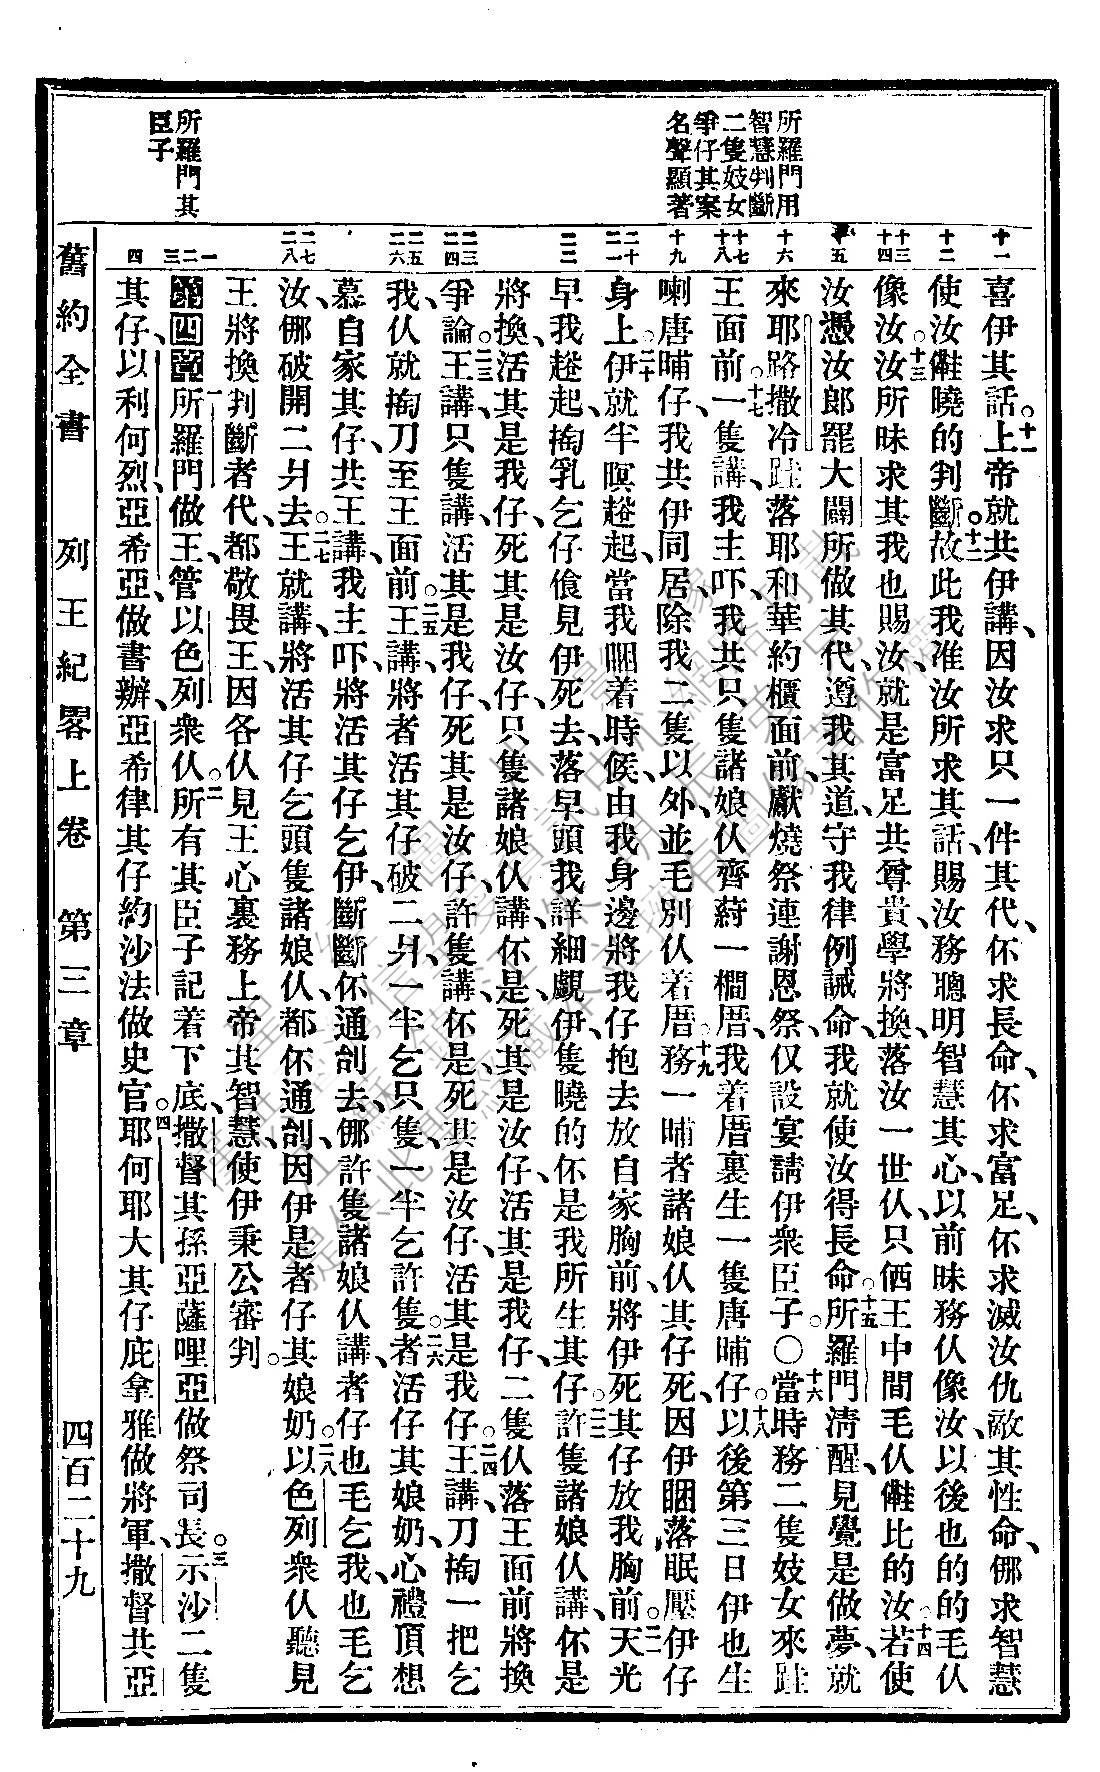 所羅門用
智慧判斷
二隻妓女
爭仔其案
名聲顯著
所羅門其
臣子
十一
十二
十三
十四
十五
十六
十七
十八
十九
二十
二一
二二
二三
二四
二五
二六
二七
二八
一
二
三
四
喜伊其話。十一上帝就共伊講、因汝求只一件其代、伓求長命、伓求富足、伓求滅汝仇敵其性命、㑚求智慧
使汝𣍐曉的判斷。十二故此我准汝所求其話、賜汝務聰明智慧其心、以前昧務仈像汝、以後也的的毛仈
像汝。十三汝所昧求其我也賜汝、就是富足共尊貴、學將換、落汝一世仈只佰王中間毛仈𣍐比的汝。十四若使
汝憑汝郎罷大闢所做其代、遵我其道、守我律例誡命、我就使汝得長命。十五所羅門清醒、見覺是做夢、就
來耶路撒冷、跬落耶和華約櫃面前、獻燒祭連謝恩祭、仅設宴請伊衆臣子。○十六當時務二隻妓女來跬
王面前。十七一隻講、我主吓、我共只隻諸娘仈齊蒔一橺厝、我着厝裏生一隻唐晡仔。十八以後第三日伊也生
喇唐晡仔、我共伊同居、除我二隻以外、並毛別仈着厝務。十九一晡者諸娘仈其仔死、因伊睏落眠壓伊仔
身上。二十伊就半暝趤起、當我睏着時候、由我身邊將我仔抱去放自家胸前、將伊死其仔放我胸前。二一天光
早我趤起、掏乳乞仔飡、見伊死去、落早頭我詳細覷伊、隻曉的伓是我所生其仔。二二許隻諸娘仈講、伓是
將換、活其是我仔、死其是汝仔、只隻諸娘仈講、伓是、死其是汝仔、活其是我仔、二隻仈落王面前將換
爭論。二三王講、只隻講、活其是我仔、死其是汝仔、許隻講、伓是、死其是汝仔、活其是我仔。二四王講、刀掏一把乞
我、仈就掏刀至王面前。二五王講、將者活其仔破二爿、一半乞只隻、一半乞許隻。二六者活仔其娘奶、心禮頂想
慕自家其仔、共王講、我主吓、將活其仔乞伊、斷斷伓通刣去、㑚許隻諸娘仈講、者仔也毛乞我、也毛乞
汝、㑚破開二爿去。二七王就講、將活其仔乞頭隻諸娘仈、都伓通刣、因伊是者仔其娘奶。二八以色列衆仈聽見
王將換判斷者代、都敬畏王、因各仈見王心裏務上帝其智慧、使伊秉公審判。
第四章 一所羅門做王、管以色列衆仈。二所有其臣子記着下底、撒督其孫亞薩哩亞做祭司長。三示沙二隻
其仔、以利何烈、亞希亞、做書辦、亞希律其仔約沙法做史官。四耶何耶大其仔庇拿雅做將軍、撒督共亞
舊約全書 列王紀畧上卷 第三章 四百二十九